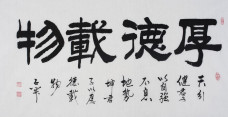 厚德載物
天行
健君子
以自強
不息
地勢
坤君
子以厚
德載
物